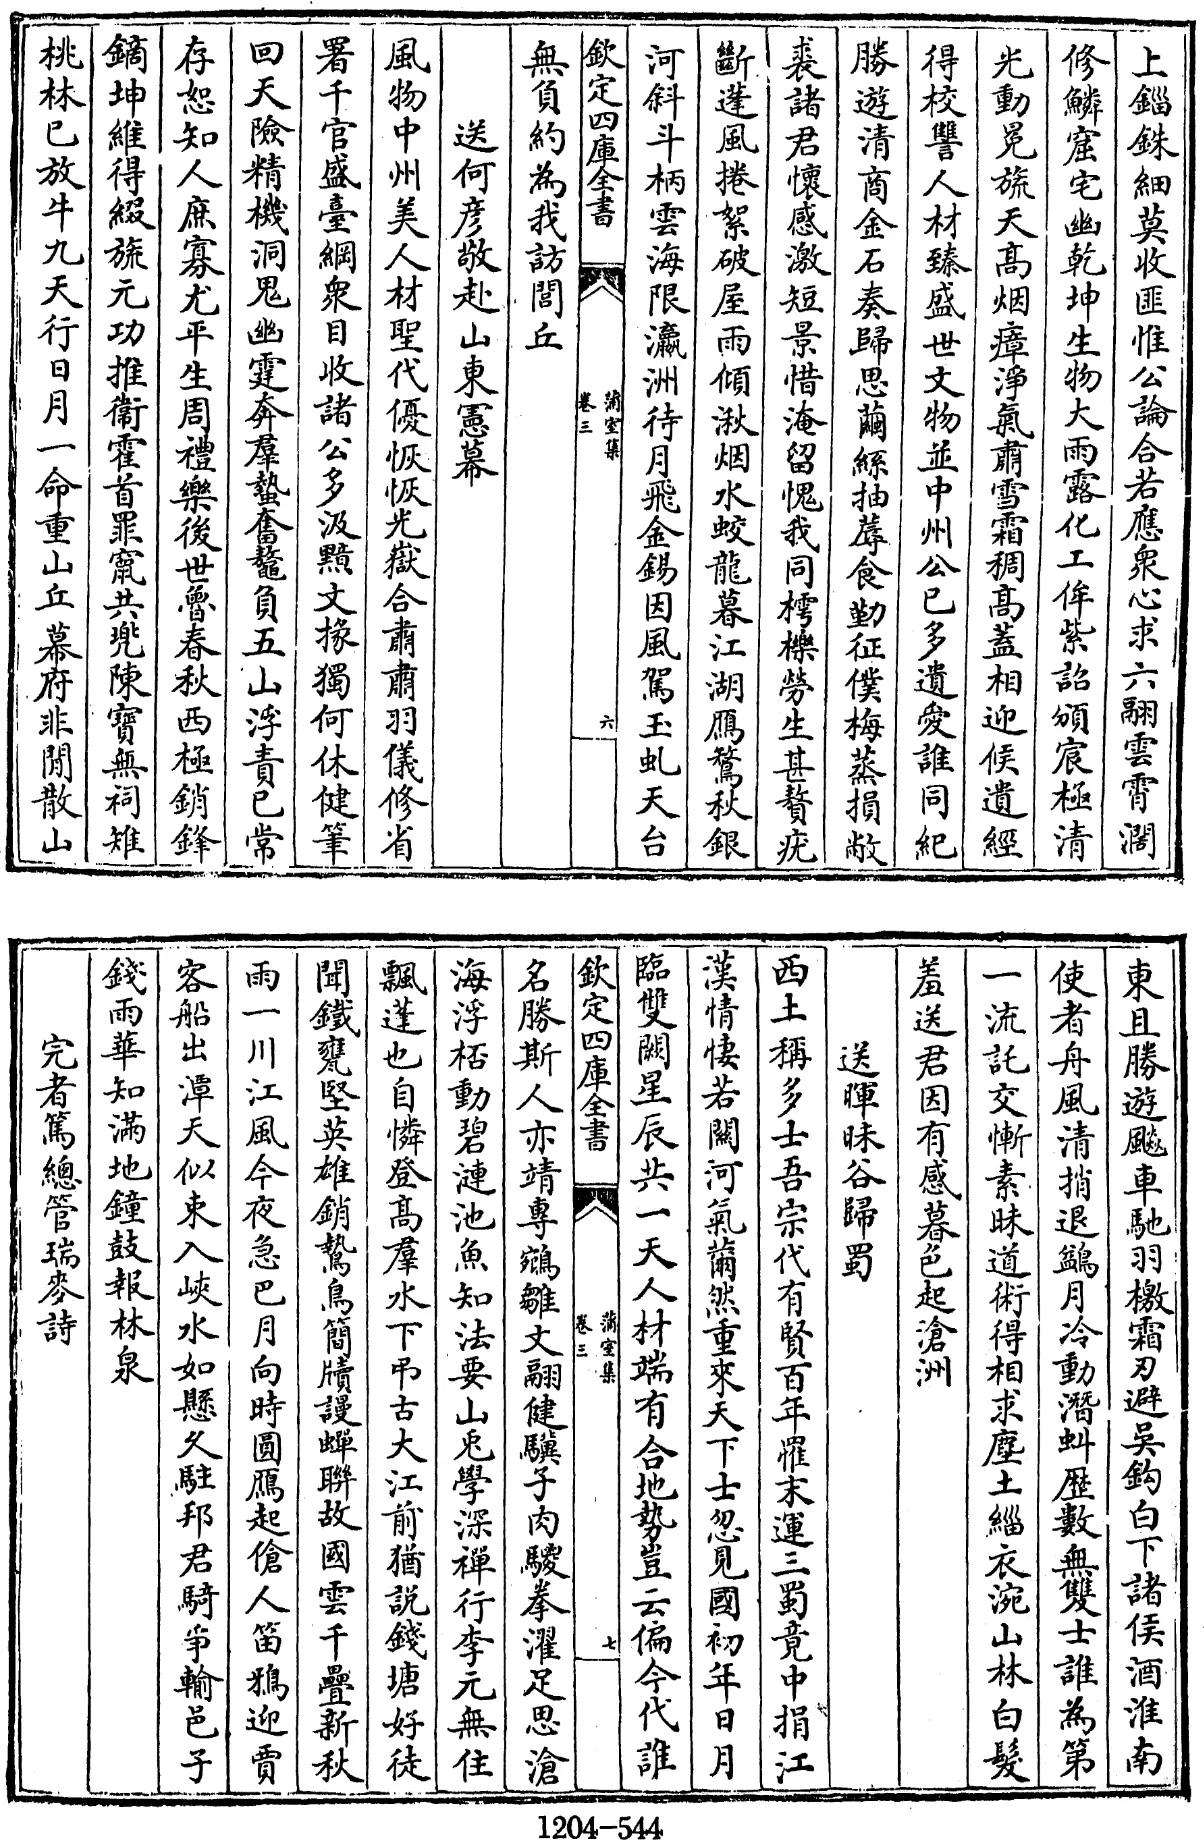 上錙銖細莫收匪惟公論合若應衆心求六翮雲霄濶
修鱗窟宅幽乾坤生物大雨露化工侔紫詔頒宸極清
光動冕旒天髙烟瘴淨氣肅雪霜稠髙蓋相迎候遺經
得校讐人材臻盛世文物並中州公已多遺愛誰同紀
勝遊清商金石奏歸思繭絲抽蓐食勤征僕梅蒸損敝
裘諸君懷感激短景惜淹留愧我同樗櫟勞生甚贅疣
斷蓬風捲絮破屋雨傾湫烟水蛟龍暮江湖鴈鶩秋銀
河斜斗柄雲海限瀛洲待月飛金錫因風駕玉虬天台
欽定四庫全書
蒲室集
卷三
六
無負約為我訪閭丘
送何彥敬赴山東憲幕
風物中州美人材聖代優恢恢光嶽合肅肅羽儀修省
署千官盛臺綱衆目收諸公多汲黯文掾獨何休健筆
回天險精機洞鬼幽霆奔羣蟄奮鼇負五山浮責已常
存恕知人庶寡尤平生周禮樂後世魯春秋西極銷鋒
鏑坤維得綴旒元功推衞霍首罪竄共兠陳寶無祠雉
桃林已放牛九天行日月一命重山丘幕府非閒散山
東且勝遊飈車馳羽檄霜刃避吴鈎白下諸侯酒淮南
使者舟風清捎退鷁月冷動潛虯歴數無雙士誰為第
一流託交慚素昧道術得相求塵土緇衣涴山林白髮
羞送君因有感暮色起滄洲
送暉昧谷歸蜀
西土稱多士吾宗代有賢百年罹末運三蜀竟中捐江
漢情悽若關河氣薾然重來天下士忽見國初年日月
臨雙闕星辰共一天人材端有合地勢豈云偏今代誰
欽定四庫全書
蒲室集
卷三
七
名勝斯人亦靖專鵷雛文翮健驥子肉騣拳濯足思滄
海浮桮動碧漣池魚知法要山兎學深禪行李元無住
飄蓬也自憐登髙羣水下弔古大江前猶説錢塘好徒
聞鐵甕堅英雄銷鷙鳥簡牘謾蟬聨故國雲千疊新秋
雨一川江風今夜急巴月向時圓鴈起傖人笛鴉迎賈
客船出潭天似束入峽水如懸久駐邦君騎爭輸邑子
錢雨華知滿地鐘鼓報林泉
完者篤總管瑞麥詩
1204-544